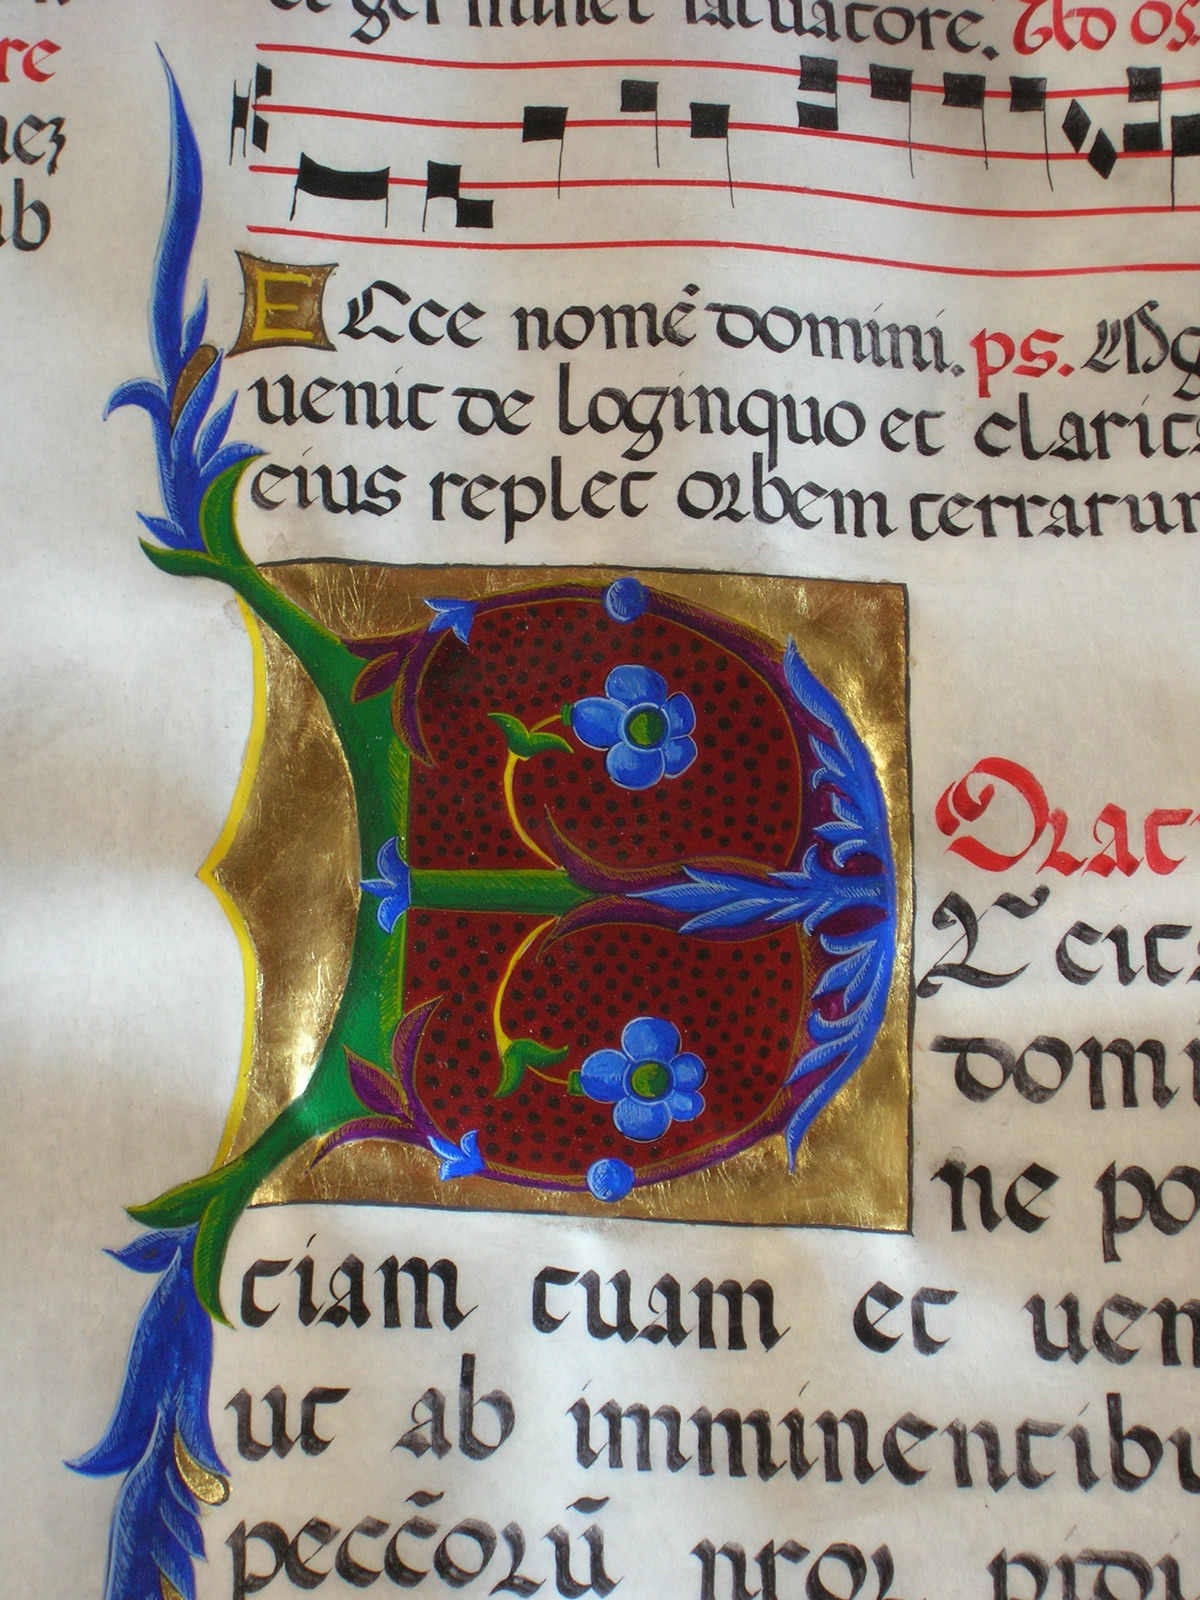 et germinet saluatore. Ad os
re
nez
ub
E Ecce nomē domini. ps. Mg
uenit de loginquo et clarita
eius replet orbem terrarum
E
Orat
Xcita
domi
ne po
tiam tuam et uen
ut ab imminentibu
peccōrū nror